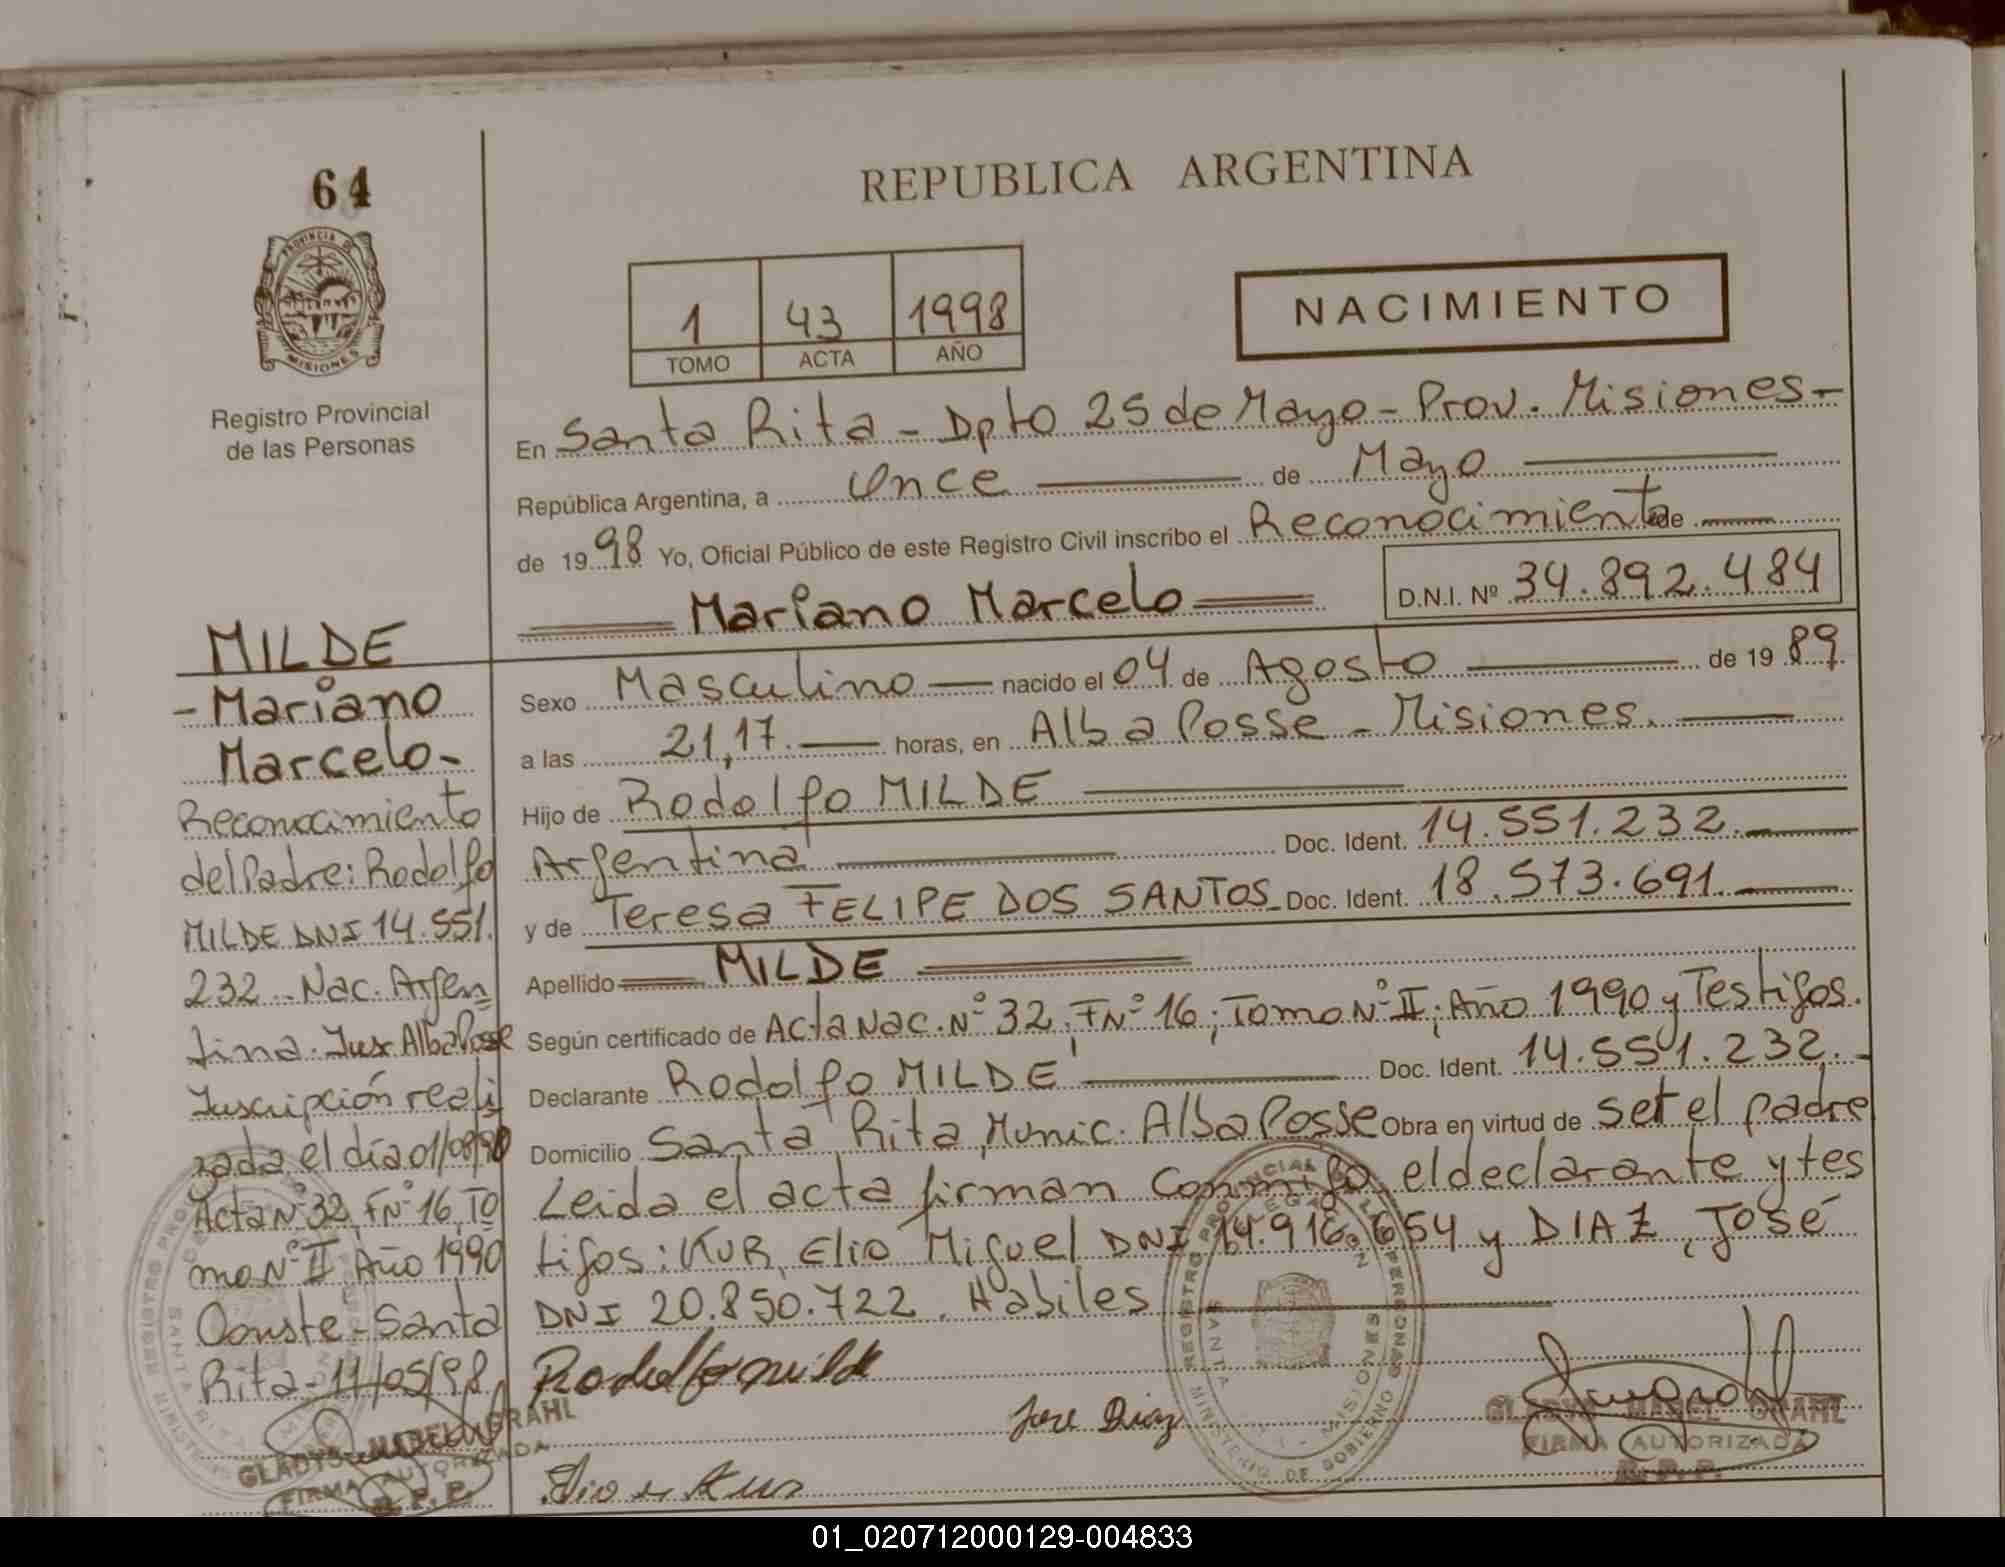 64
PROVINCIA DE
MISIONES
Registro Provincial
de las Personas
MILDE
- Mariano
Marcelo -
Reconocimiento
del Padre: Rodolfo
MILDE DNI 14.551.
232 - Nac. Argen
tina. Insc Alba Posse
Inscripción reali
zada el día 01/08/90
Acta Nº 32, FNº 16, To
mo Nº II, Año 1990
Conste - Santa
Rita - 11/05/98
GLADYS MABEL GRAHL
FIRMA AUTORIZADA
R. P. P.
REPUBLICA ARGENTINA
1 43 1998
TOMO ACTA AÑO
NACIMIENTO
En Santa Rita - Dpto 25 de Mayo - Prov. Misiones -
República Argentina, a Once de Mayo
de 1998 Yo, Oficial Público de este Registro Civil inscribo el Reconocimiento de
Mariano Marcelo D.N.I. Nº 34.892.484
Sexo Masculino nacido el 04 de Agosto de 1989
a las 21,17. horas, en Alba Posse - Misiones.
Hijo de Rodolfo MILDE
Argentina Doc. Ident. 14.551.232.
y de Teresa FELIPE DOS SANTOS Doc. Ident. 18.573.691.
Apellido MILDE
Según certificado de Acta Nac. Nº 32, FNº 16; Tomo Nº II; Año 1990 y Testigos.
Declarante Rodolfo MILDE Doc. Ident. 14.551.232.
Domicilio Santa Rita, Munic. Alba Posse Obra en virtud de ser el padre
Leida el acta firman conmigo, el declarante y tes
tigos: KUR, Elio Miguel DNI 14.916.654 y DIAZ, José
DNI 20.850.722. Habiles
Rodolfo Milde
Jose Diaz
REGISTRO PROVINCIAL DE LAS PERSONAS
MINISTERIO DE GOBIERNO
SANTA
MISIONES
GLADYS MABEL GRAHL
FIRMA AUTORIZADA
R. P. P.
01_020712000129-004833